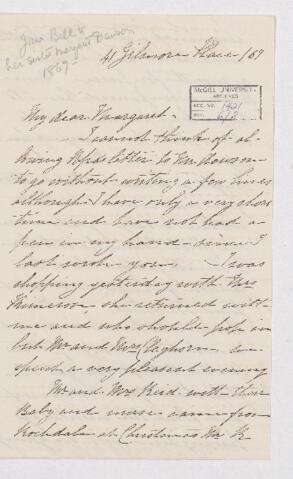 Jane Bell to
her sister Margaret Dawson
1869
41 Gilmore Place /69
McGILL UNIVERSITY
ARCHIVES
ACC. NO. 1421
REF.
My dear Margaret.
I cannot think of al
lowing letter to Mr Dawson
to go without writing a few lines
although I have only a very short
time and have not had a
pen in my hand since I
last wrote you. I was
shopping yesterday with Mrs
she returned with
me and who should pop in
but Mr and Mrs Cleghorn we
spent a very pleasant evening
Mr and Mrs Reid with their
Baby and nurse came from
Rochdale at Christmas Mr R